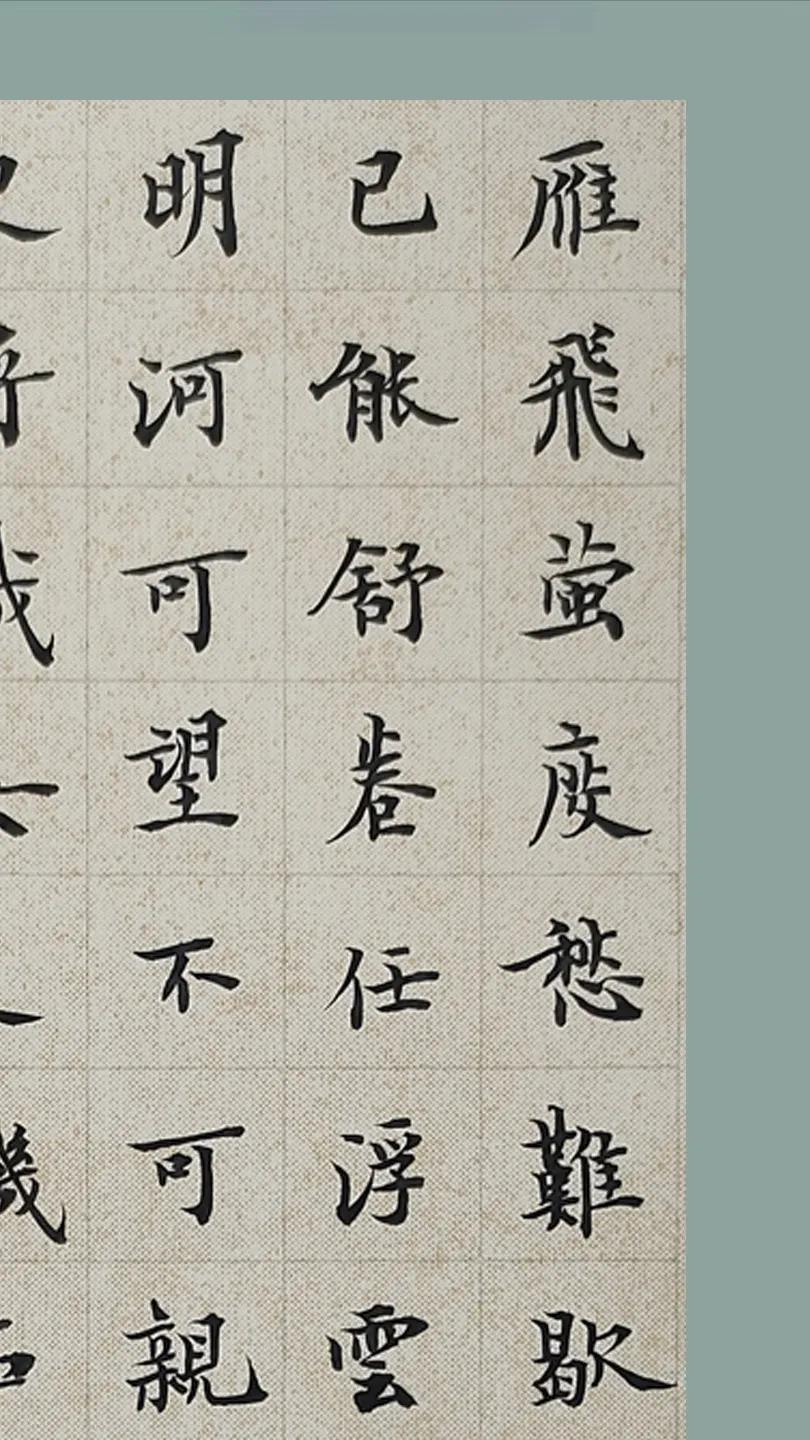 雁飛螢度愁難歇
已能舒卷任浮雲
明河可望不可親